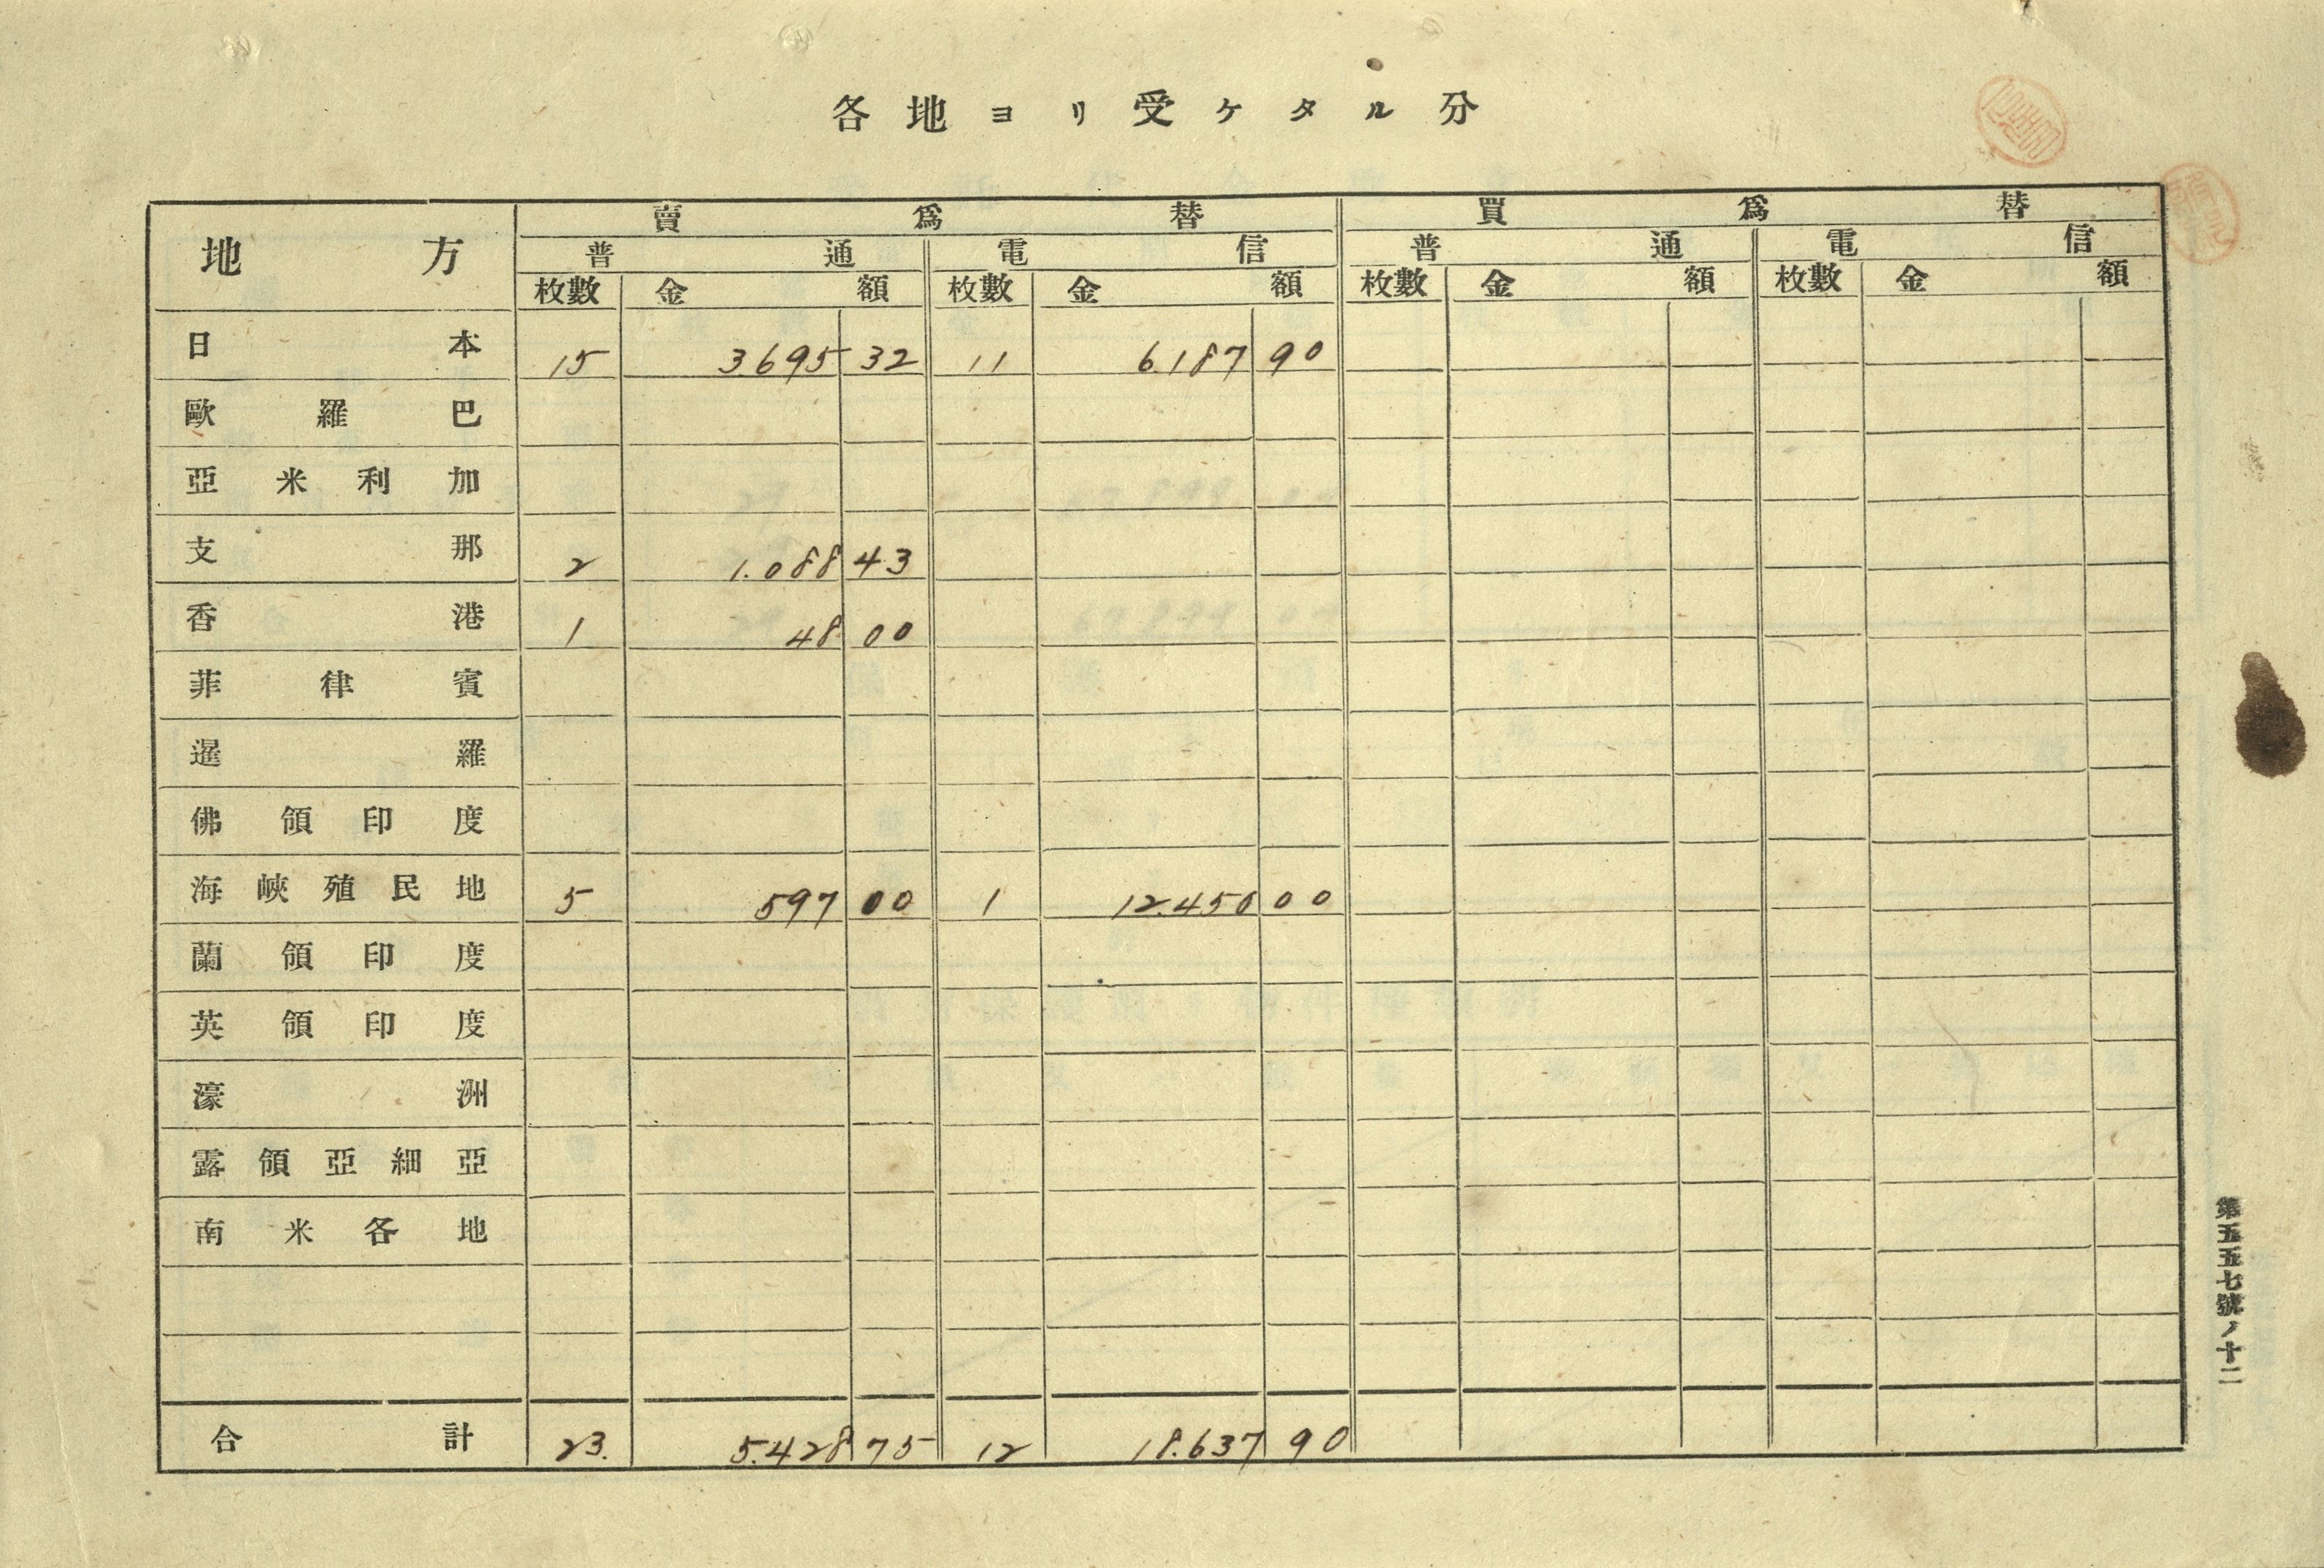 各地ヨリ受ケタル分
地方 賣爲替 買爲替
普通 電信 普通 電信
枚數 金額 枚數 金額 枚數 金額 枚數 金額
日本 15 3.695 32 11 6.187 90
歐羅巴
亞米利加
支那 2 1.088 43
香港 1 48 00
菲律賓
暹羅
佛領印度
海峽殖民地 5 597 00 1 12.450 00
蘭領印度
英領印度
濠洲
露領亞細亞
南米各地
合計 23. 5.428 75 12 18.637 90
第五五七號ノ十二